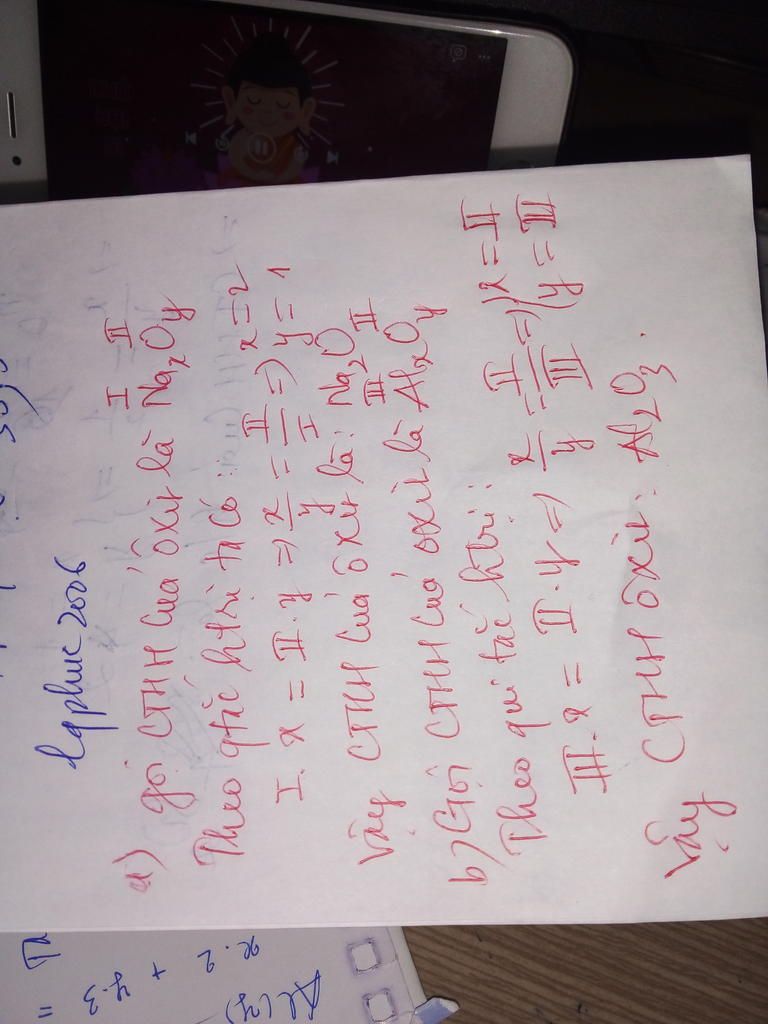 lqphuc 2006
a) gọi CTHH của ôxit là NaxOy
I II
Theo qtắc htrị ta có:
I. x = II. y => x/y = II/I => x = 2 y = 1
Vậy CTHH của ôxit là: Na2O
b) Gọi CTHH của oxit là AlxOy
III II
Theo qui tắc htrị:
III. x = II. y => x/y = II/III => x = II y = III
Vậy CTHH ôxit: Al2O3.
x. 2 + y. 3
Al (y)
=